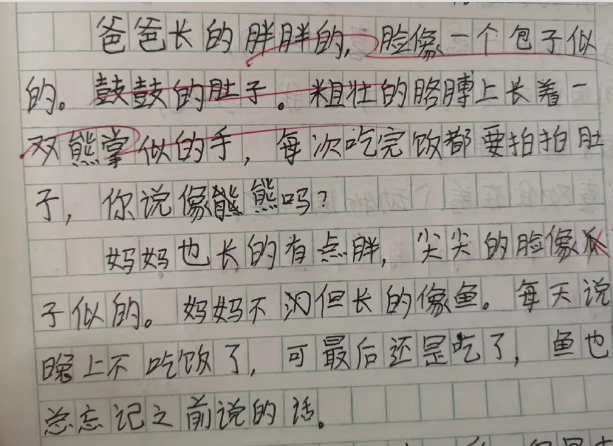 爸爸长的胖胖的，脸像一个包子似
的。鼓鼓的肚子。粗壮的胳膊上长着一
双熊掌似的手，每次吃完饭都要拍拍肚
子，你说像熊熊吗？
妈妈也长的有点胖，尖尖的脸像瓜
子似的。妈妈不 但长的像鱼。每天说
晚上不吃饭了，可最后还是吃了，鱼也
总忘记之前说的话。